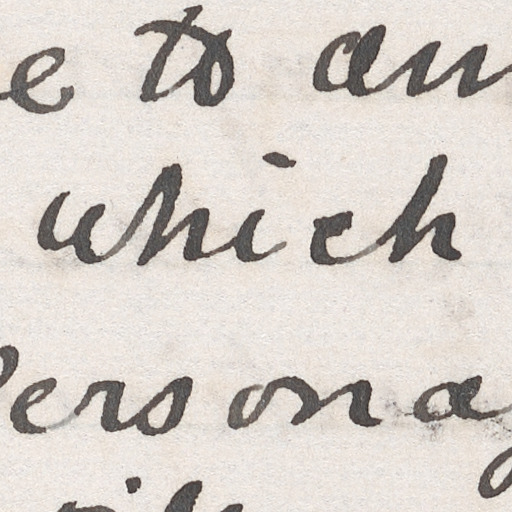 e to an
which
Persona